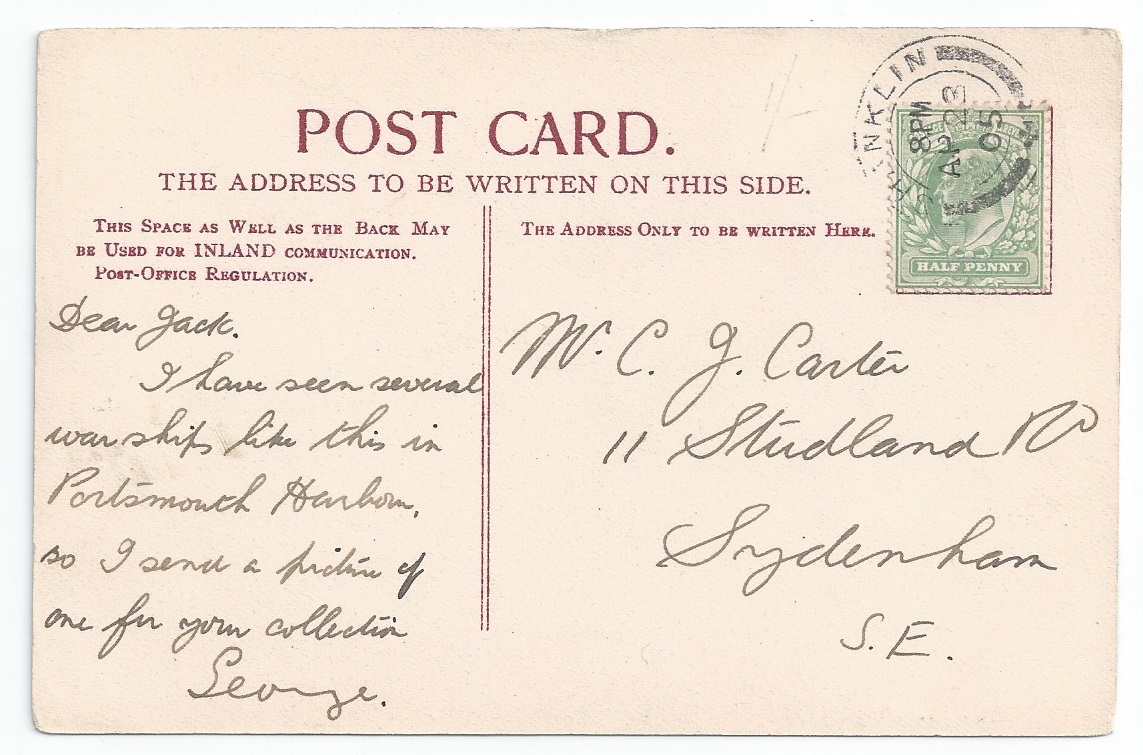 POST CARD.
THE ADDRESS TO BE WRITTEN ON THIS SIDE.
THIS SPACE AS WELL AS THE BACK MAY
BE USED FOR INLAND COMMUNICATION.
POST-OFFICE REGULATION.
Dear Jack.
I have seen several
war ships like this in
Portsmouth Harbour,
so I send a picture of
one for your collection
George.
THE ADDRESS ONLY TO BE WRITTEN HERE.
Mr. C. J. Carter
11 Studland Rd
Sydenham
S. E.
1/-
SHANKLIN
8 PM
AP 28
05
HALF PENNY